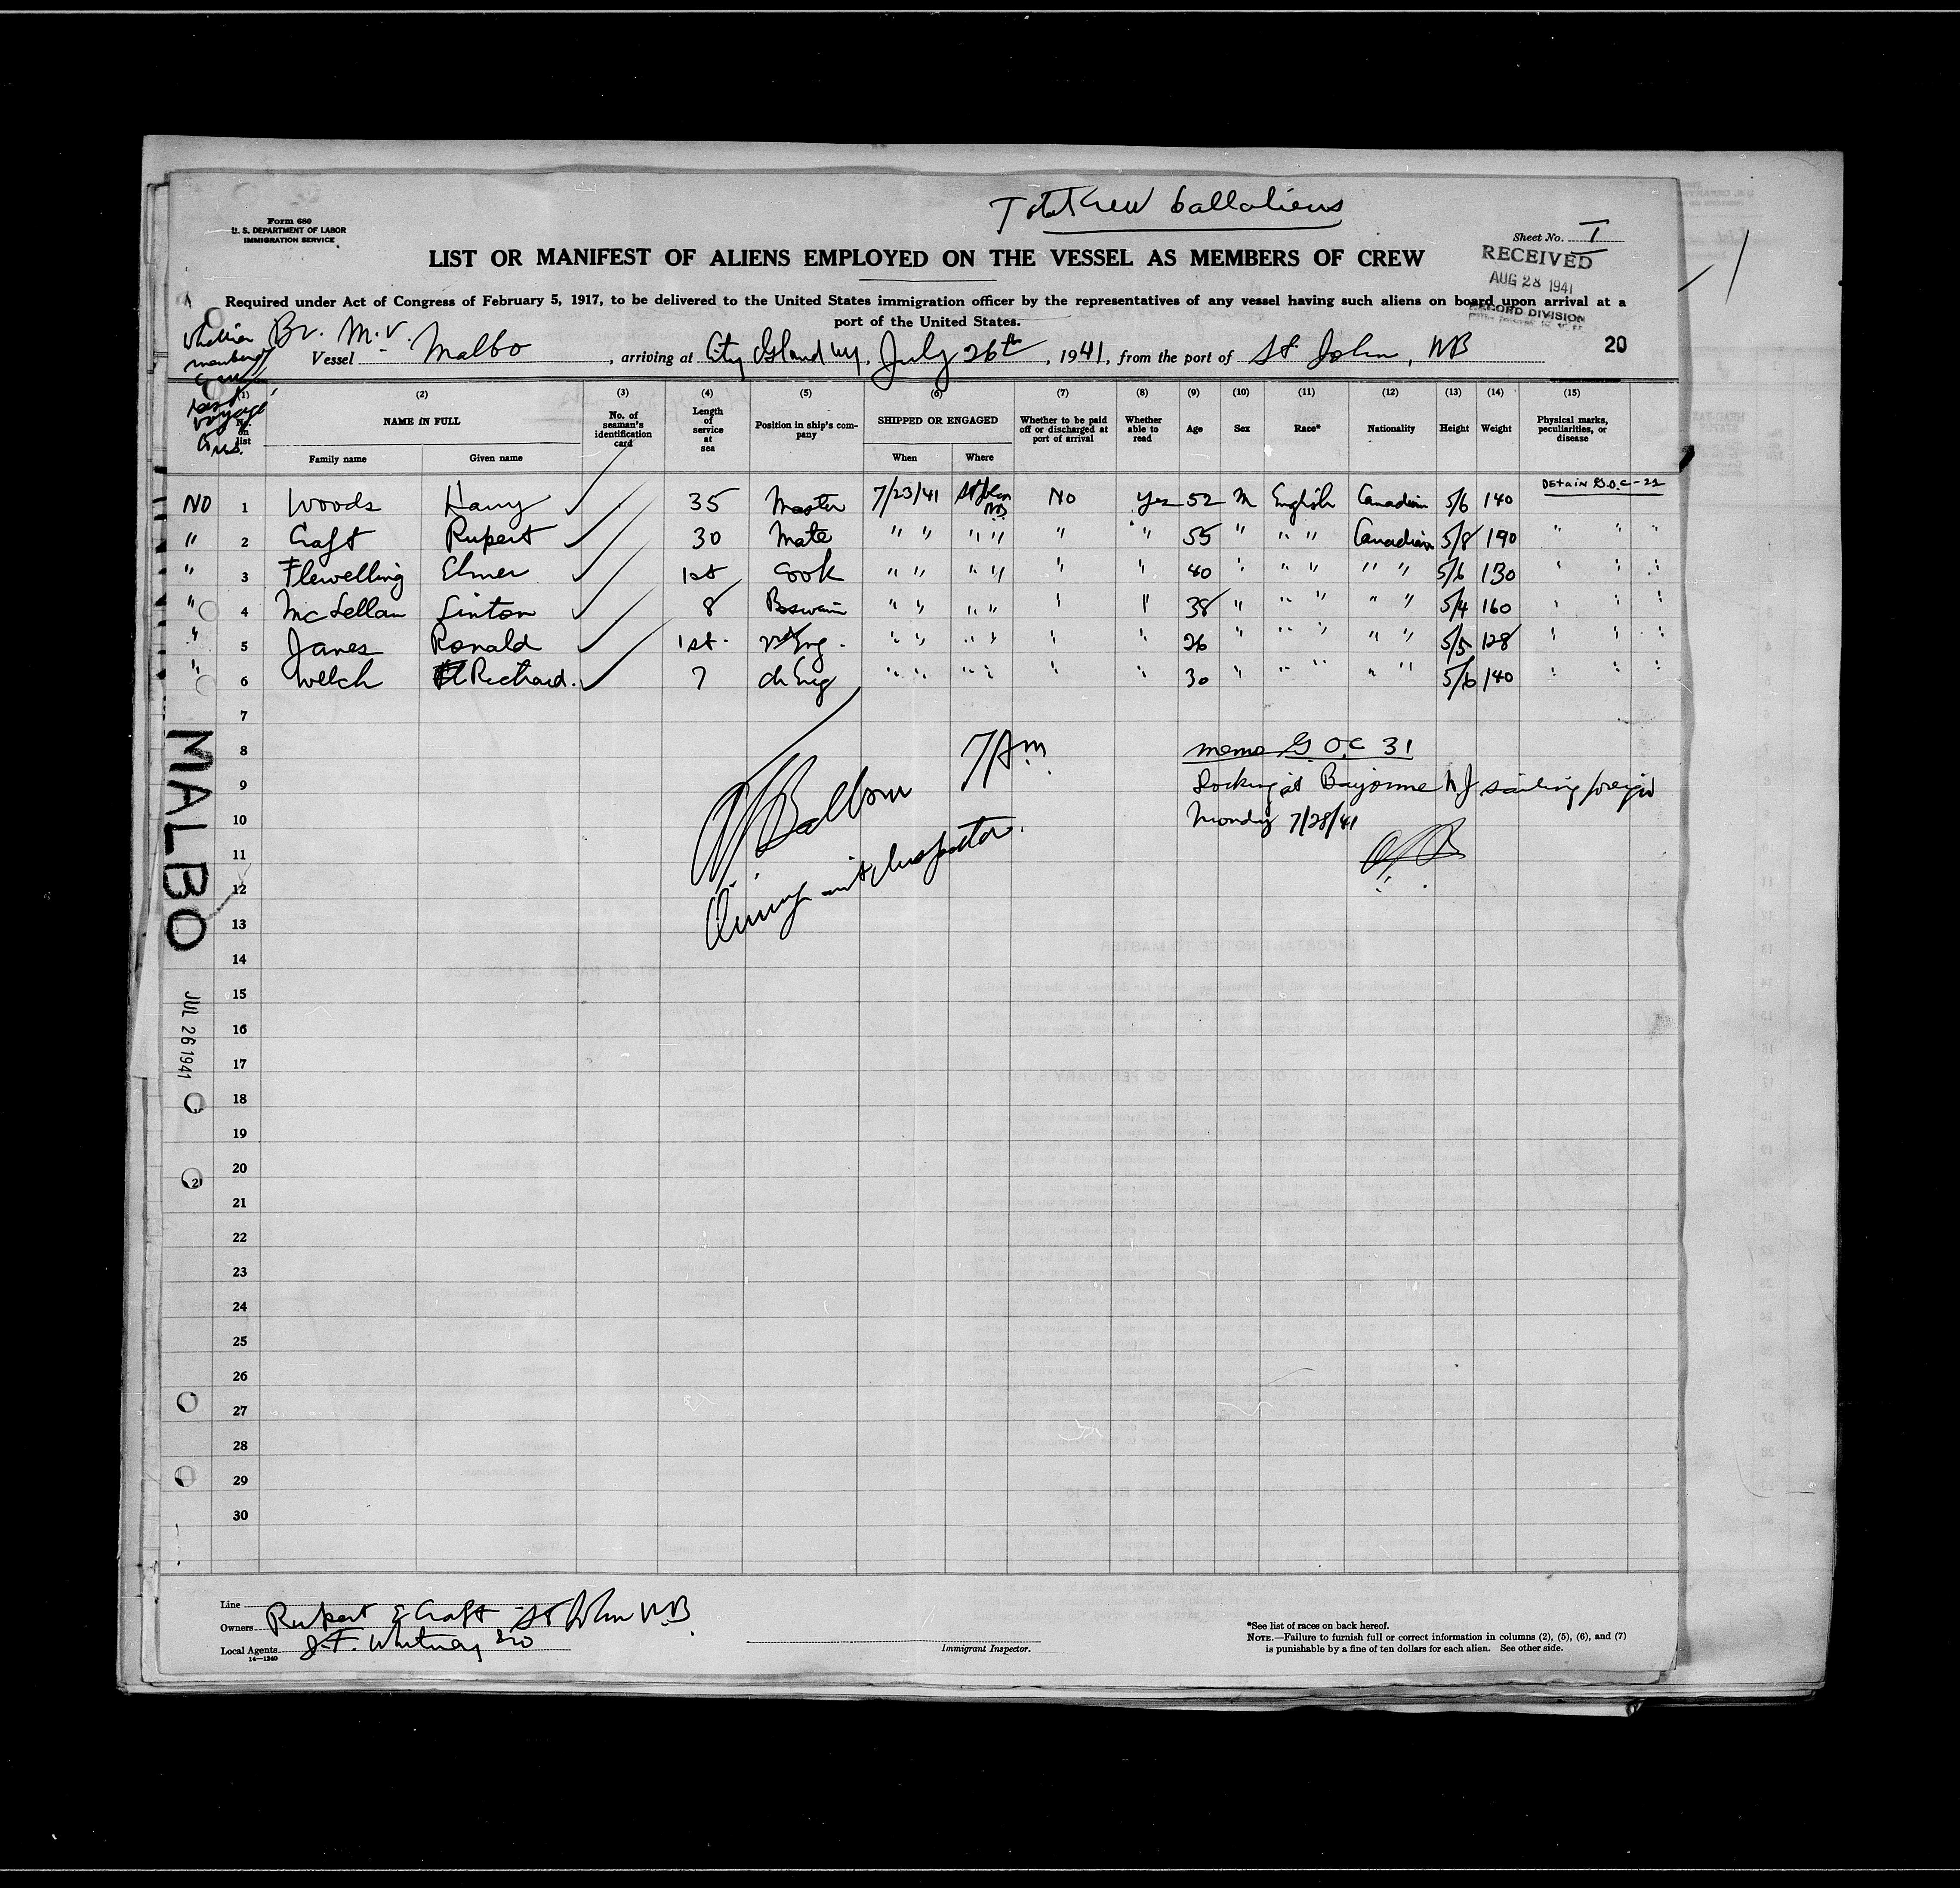 Total Crew 6 all aliens
Form 680
U. S. DEPARTMENT OF LABOR
IMMIGRATION SERVICE
Sheet No. I
LIST OR MANIFEST OF ALIENS EMPLOYED ON THE VESSEL AS MEMBERS OF CREW
RECEIVED
AUG 28 1941
RECORD DIVISION
Required under Act of Congress of February 5, 1917, to be delivered to the United States immigration officer by the representatives of any vessel having such aliens on board upon arrival at a
port of the United States.
Whether
member of
crew
last
voyage
to U.S.
Br. M.V.
Vessel Malbo, arriving at City Island NY, July 26th, 1941, from the port of St John, NB 20
(1) (2) (3) (4) (5) (6) (7) (8) (9) (10) (11) (12) (13) (14) (15)
No. on list NAME IN FULL No. of seaman's identification card Length of service at sea Position in ship's company SHIPPED OR ENGAGED Whether to be paid off or discharged at port of arrival Whether able to read Age Sex Race* Nationality Height Weight Physical marks, peculiarities, or disease
Family name Given name When Where
NO 1 Woods Harry 35 Master 7/23/41 St John NB No Yes 52 M English Canadian 5/6 140 Detain G.O.C-22
" 2 Craft Rupert 30 Mate " " " " " " 55 " " " Canadian 5/8 190 " " "
" 3 Flewelling Elmer 1st Cook " " " " " " 40 " " " " " 5/6 130 " " "
" 4 McLellan Linton 8 Boswain " " " " " " 38 " " " " " 5/4 160 " " "
" 5 Janes Ronald 1st Eng. " " " " " " 26 " " " " " 5/5 128 " " "
" 6 Welch Richard. 7 ch Eng " " " " " " 30 " " " " " 5/6 140 " " "
7
8 7 AM memo G.O.C 31
9 Docking at Bayonne NJ sailing foreign
10 Monday 7/28/41
11 Inspector.
12
13
14
15
16
17
18
19
20
21
22
23
24
25
26
27
28
29
30
MALBO
JUL 26 1941
2
Line
Owners Rupert E Craft St John N.B.
Local Agents J.F. Whitney & Co
14—1240
Immigrant Inspector.
*See list of races on back hereof.
NOTE.—Failure to furnish full or correct information in columns (2), (5), (6), and (7)
is punishable by a fine of ten dollars for each alien. See other side.